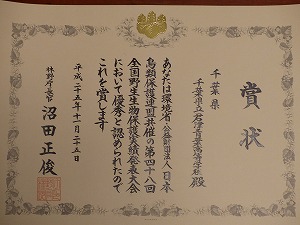 賞状
千葉県
千葉県立君津青葉高等学校 殿
あなたは環境省 公益財団法人 日本
鳥類保護連盟共催の第四十八回
全国野生生物保護実績発表大会
において優秀と認められたので
これを賞します
平成二十五年十一月二十五日
林野庁長官 沼田正俊